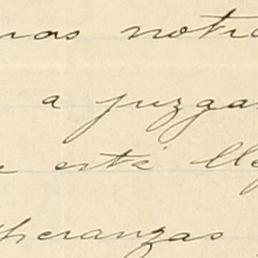 nas notic
a juzgar
e esta lle
speranzas